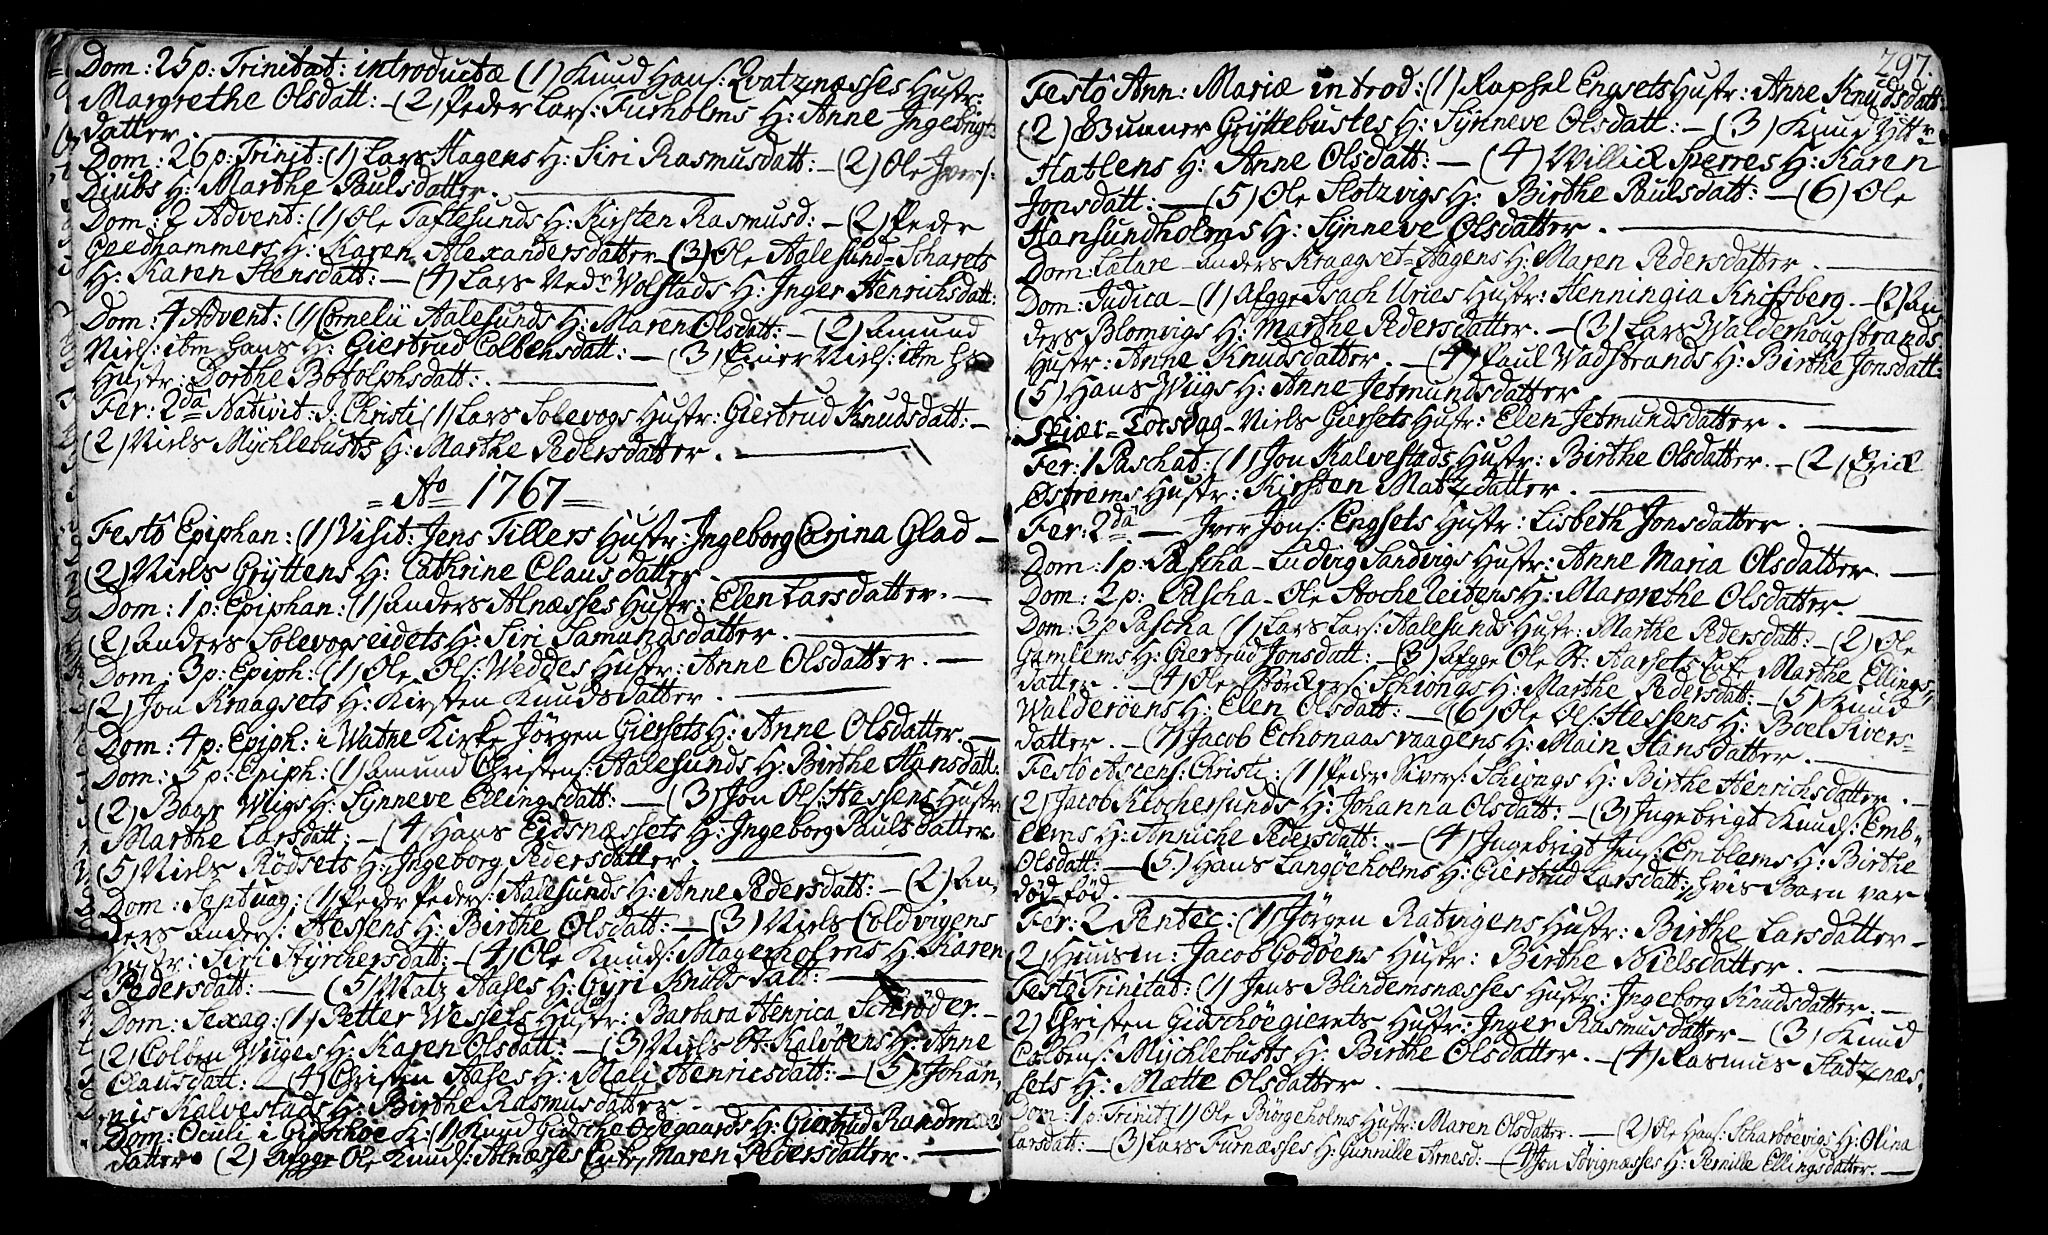 Dom: 25 p: Trinitat: introductæ (1) Knud Hans: Qvatznæsses Hustr:
Margrethe Olsdatt: - (2) Peder Lars: Furholms H: Anne Ingebrigts
datter.
Dom: 26 p: Trinit: (1) Lars Hagens H: Siri Rasmusdatt: - (2) Ole Ivers:
Diubs H: Marthe Paulsdatter.
Dom: 2 Advent: (1) Ole Taftesunds H: Kirsten Rasmusd: - (2) Peder
Geedhammers H: Karen Alexandersdatter - (3) Ole Aalesund-Scharets
H: Karen Stensdatt: - (4) Lars Nedr Wolstads H: Inger Henrichsdatt:
Dom: 4 Advent: (1) Cornelii Aalesunds H: Maren Olsdatt: - (2) Amund
Niels: itm hans H: Giertrud Colbensdatt: - (3) Einer Niels: itm
Hustr: Dorthe Botolphsdatt:
Fer: 2da Nativit: J: Christi (1) Lars Solevogs Hustr: Giertrud Knudsdatt: -
(2) Niels Mychlebusts H: Marthe Pedersdatter.
= Ao 1767 =
Festo Epiphan: (1) Visit: Jens Tillers Hustr: Ingeborg Carina Glad -
(2) Niels Gryttens H: Cathrine Clausdatter.
Dom: 1 p: Epiphan: (1) Anders Alnæsses Hustr: Elen Larsdatter. -
(2) Anders Solevogseidets H: Siri Samundsdatter.
Dom: 3 p: Epiph: (1) Ole Ols: Weddes Hustr: Anne Olsdatter. -
(2) Jon Kraagsets H: Kirsten Knudsdatter.
Dom: 4 p: Epiph: i Watne Kirke Jörgen Giersets H: Anne Olsdatter. -
Dom: 5 p: Epiph: (1) Amund Christens: Aalesunds H: Birthe Hansdatt:
(2) Baar Wiigs H: Synneve Ellingsdatt: - (3) Jon Ols: Hessens Hustr:
Marthe Larsdatt: - (4) Hans Eidsnæssets H: Ingeborg Paulsdatter.
(5) Niels Rödsets H: Ingeborg Pedersdatter.
Dom: Septuag: (1) Peder Peders: Aalesunds H: Anne Pedersdatt: - (2) An,
ders Anders: Hessens H: Birthe Olsdatt: - (3) Niels Coldvigens
Hustr: Siri Styrchersdatt: - (4) Ole Knuds: Magerholms H: Karen
Pedersdatt: - (5) Matz Aases H: Gyri Knudsdatt:
Dom: Sexag: (1) Petter Wessels Hustr: Barbara Henrica Schröder. -
(2) Colben Wiiges H: Karen Olsdatt: - (3) Niels St: Kalvöens H: Anne
Clausdatt: - (4) Christen Aases H: Mali Henricsdatt: - (5) Johan,
nis Kalvestads H: Birthe Rasmusdatter.
Dom: Oculi i Gidschöe K: (1) Knud Gidsche Ödegaards H: Giertrud Randm
datter. (2) Afgge Ole Knuds: Alnæsses Enke, Maren Pedersdatter.
297.
Festo Ann: Mariæ introd: (1) Raphel Engsets Hustr: Anne Knudsdatt:
(2) Gunner Gryttebustes H: Synneve Olsdatt: - (3) Knud Yttr
Hatlens H: Anne Olsdatt: - (4) Willick Sperres H: Karen
Jonsdatt: - (5) Ole Slotzvigs H: Birthe Paulsdatt: - (6) Ole
Hansundholms H: Synneve Olsdatter.
Dom: Lætare - Anders Kraagset-Hagens H: Maren Pedersdatter.
Dom: Judica - (1) Afgge Isach Uries Hustr: Henningia Kniffsberg. - (2) An,
ders Blomvigs H: Marthe Pedersdatter. - (3) Lars Walderhougstrands
Hustr: Anne Knudsdatter. - (4) Paul Wadstrands H: Birthe Jonsdatt:
(5) Hans Wiigs H: Anne Jetmundsdatter
Skiær-Torsdag - Niels Giersets Hustr: Elen Jetmundsdatter.
Fer: 1 Paschat: (1) Jon Kalvestads Hustr: Birthe Olsdatter. - (2) Erick
Östrems Hustr: Kirsten Matzdatter.
Fer: 2da - Iver Jons: Engsets Hustr: Lisbeth Jonsdatter.
Dom: 1 p: Pascha - Ludvig Sandvigs Hustr: Anne Maria Olsdatter. -
Dom: 2 p: Pascha - Ole Stocheleitens H: Margrethe Olsdatter.
Dom: 3 p Pascha (1) Lars Lars: Aalesunds Hustr: Marthe Pedersdatt: - (2) Ole
Gamlems H: Giertrud Jonsdatt: - (3) Afgge Ole St: Aarsets Enke Marthe Ellings,
datter. - (4) Ole Börckers: Schiongs H: Marthe Pedersdatt: - (5) Knud
Walderöens H: Elen Olsdatt: - (6) Ole Ols: Hessens H: Boel Sivers-
datter. - (7) Jacob Echonaasvaagens H: Marn Hansdatter.
Festo Ascens: Christi: (1) Peder Sivers: Schiongs H: Birthe Henrichsdatter. -
(2) Jacob Klochersunds H: Johanna Olsdatt: - (3) Ingebrigt Knuds: Emb"
lems H: Anniche Pedersdatt: - (4) Ingebrigt Jens: Emblems H: Birthe
Olsdatt: - (5) Hans Langöeholms H: Giertrud Larsdatt: hvis Barn var
död-föd.
Fer: 2 Pentec: (1) Jörgen Ratvigens Hustr: Birthe Larsdatter -
(2) Huusm: Jacob Godöens Hustr: Birthe Nielsdatter.
Festo Trinitat: (1) Jens Blindemsnæsses Hustr: Ingeborg Knudsdatter. -
(2) Christen Gidschöegierets Hustr: Inger Rasmusdatter - (3) Knud
Colbens: Mychlebusts H: Birthe Olsdatter. - (4) Rasmus Hatznæs,
sets H: Mætte Olsdatter.
Dom: 1 p: Trinit: (1) Ole Biörgeholms Hustr: Maren Olsdatter. - (2) Ole Hans: Scharböevigs H: Olina
Larsdatt: - (3) Lars Furnæsses H: Gunnille Arnesd: - (4) Jon Sövignæsses H: Pernille Ellingsdatter. -